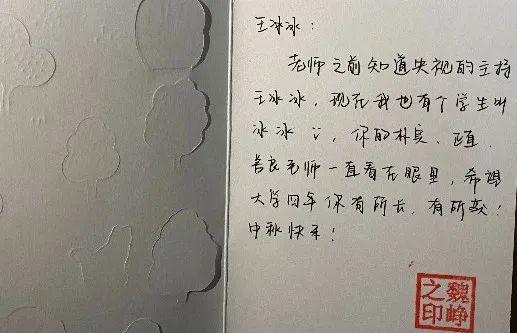 王冰冰：
老师之前知道央视的主持
王冰冰，现在我也有个学生叫
冰冰 ¨̮，你的朴实、正直、
善良老师一直看在眼里，希望
大学四年你有所长，有所获！
中秋快乐！
魏峥
之印